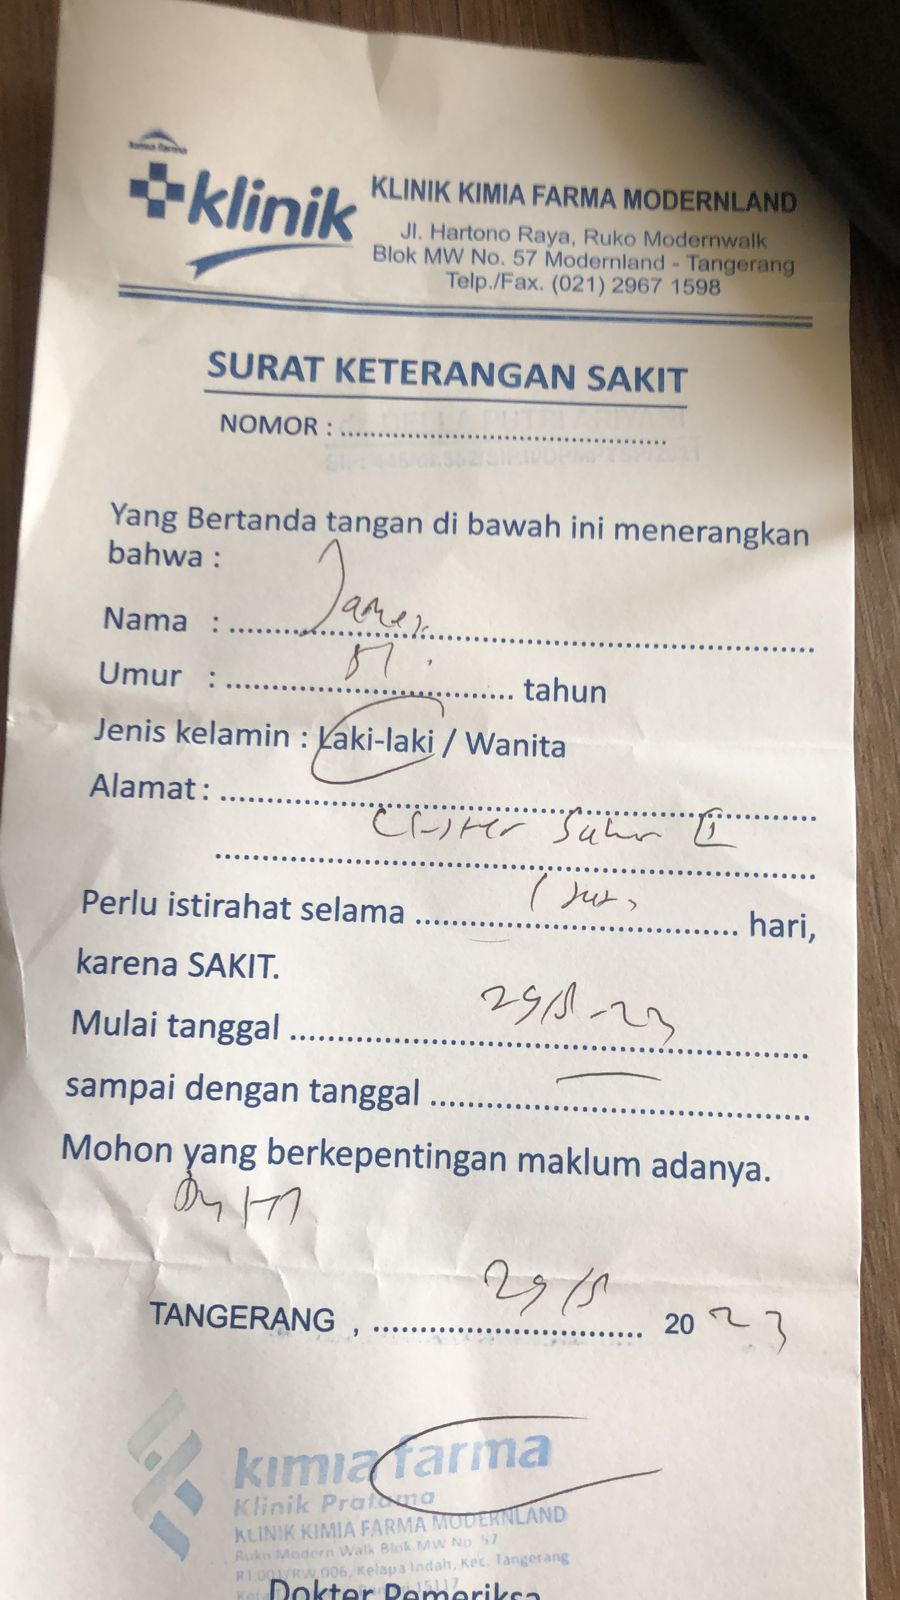 kimia farma
klinik
KLINIK KIMIA FARMA MODERNLAND
Jl. Hartono Raya, Ruko Modernwalk
Blok MW No. 57 Modernland - Tangerang
Telp./Fax. (021) 2967 1598
SURAT KETERANGAN SAKIT
NOMOR :
Yang Bertanda tangan di bawah ini menerangkan
bahwa :
Nama : James
Umur : tahun
Jenis kelamin : Laki-laki / Wanita
Alamat :
Cluster
Perlu istirahat selama hari,
karena SAKIT.
Mulai tanggal 29/5-23
sampai dengan tanggal
Mohon yang berkepentingan maklum adanya.
TANGERANG , 29/5 2023
kimia farma
Klinik Pratama
KLINIK KIMIA FARMA MODERNLAND
Ruko Modern Walk Blok MW No 57
RT.001/RW.006, Kelapa Indah, Kec. Tangerang
15117
Dokter Pemeriksa